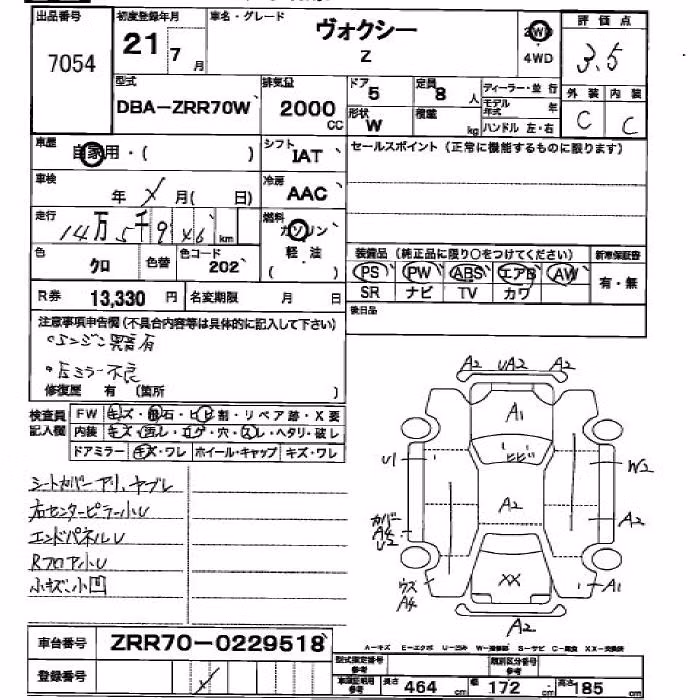 出品番号 初度登録年月 車名・グレード 評価点
7054 21 7月 ヴォクシー Z 2WD 4WD 3.5
型式 排気量 ドア 定員 ディーラー・並行 外装 内装
DBA-ZRR70W 2000CC 5 8人 モデル年式 年 C C
形状 W 積載 kg ハンドル 左・右
車歴 自家用・( ) シフト IAT セールスポイント (正常に機能するものに限ります)
車検 年 X 月( 日) 冷房 AAC
走行 14万5千9 X6 km 燃料 ガソリン
軽・油 ( )
色 クロ 色替 色コード 202
装備品 (純正品に限り○をつけてください) 新車保証書
PS PW ABS エアB AW 有・無
SR ナビ TV カワ
R券 13,330円 名変期限 月 日 後日品
注意事項申告欄 (不具合内容等は具体的に記入して下さい)
・エンジン異音有
・左ミラー不良
修復歴 有 (箇所 )
検査員記入欄 FW キズ・飛石・ヒビ割・リペア跡・X要
内装 キズ・凹レ・コゲ・穴・スレ・ヘタリ・破レ
ドアミラー キズ・ワレ ホイール・キャップ キズ・ワレ
シートカバーアリ、ヤブレ
右センターピラー小U
エンドパネルU
Rフロア小U
小キズ、小凹
A2 UA2 A2
A1
ヒビ
U1 W2
A2
カバーA4 U2 A2
XX
ウズA4 A1
A2
A-キズ E-エクボ U-凹み W-補修跡 S-サビ C-腐食 XX-交換済
車台番号 ZRR70-0229518
登録番号 X
型式指定番号 参考 類別区分番号 参考
車検証明用参考 長さ 464cm 幅 172cm 高さ 185cm